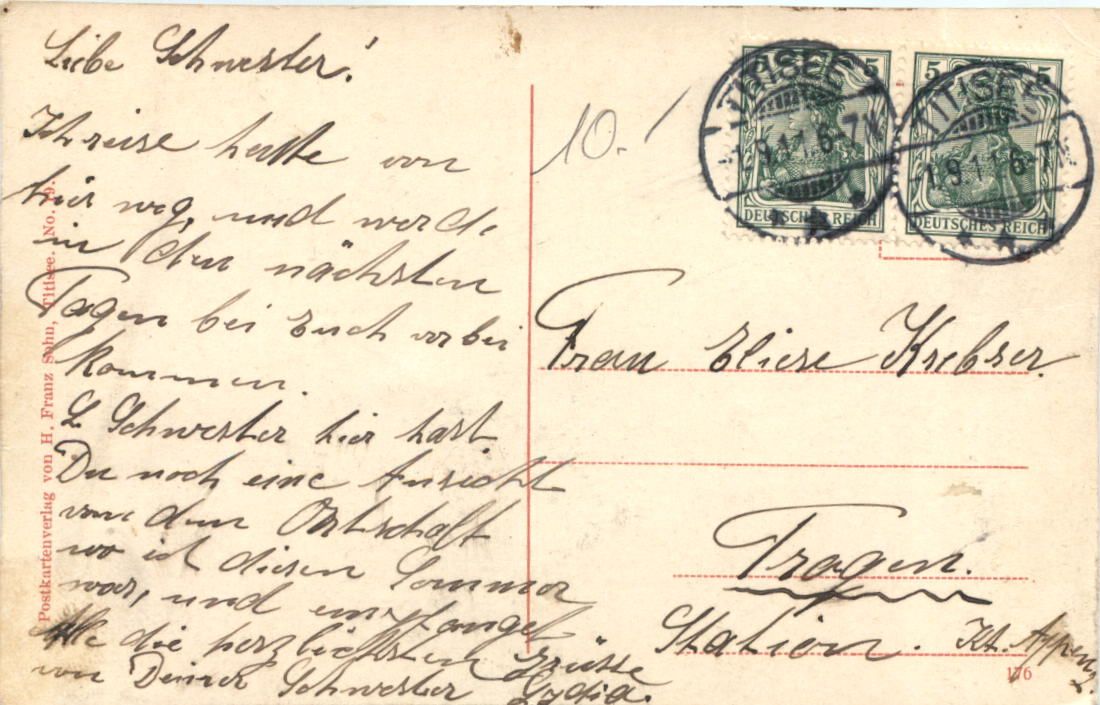 Liebe Schwester!
Ich reise heute von
hier weg, und werde
in den nächsten
Tagen bei Euch vorbei
kommen.
L. Schwester hier hast
Du noch eine Ansicht
von dem Ortschaft
wo ich diesen Sommer
war, und
Alle die herzlichsten Grüsse
von Deiner Schwester Lydia.
Postkartenverlag von H. Franz Sohn, Titisee. No. 19.
10.-
5 5
TITISEE
1.9.11.6-7N.
DEUTSCHES REICH
5 5
TITISEE
1.9.11.6-7N.
DEUTSCHES REICH
Frau Eliese Krebser.
Trogen.
Station. Kt. Appenz.
176